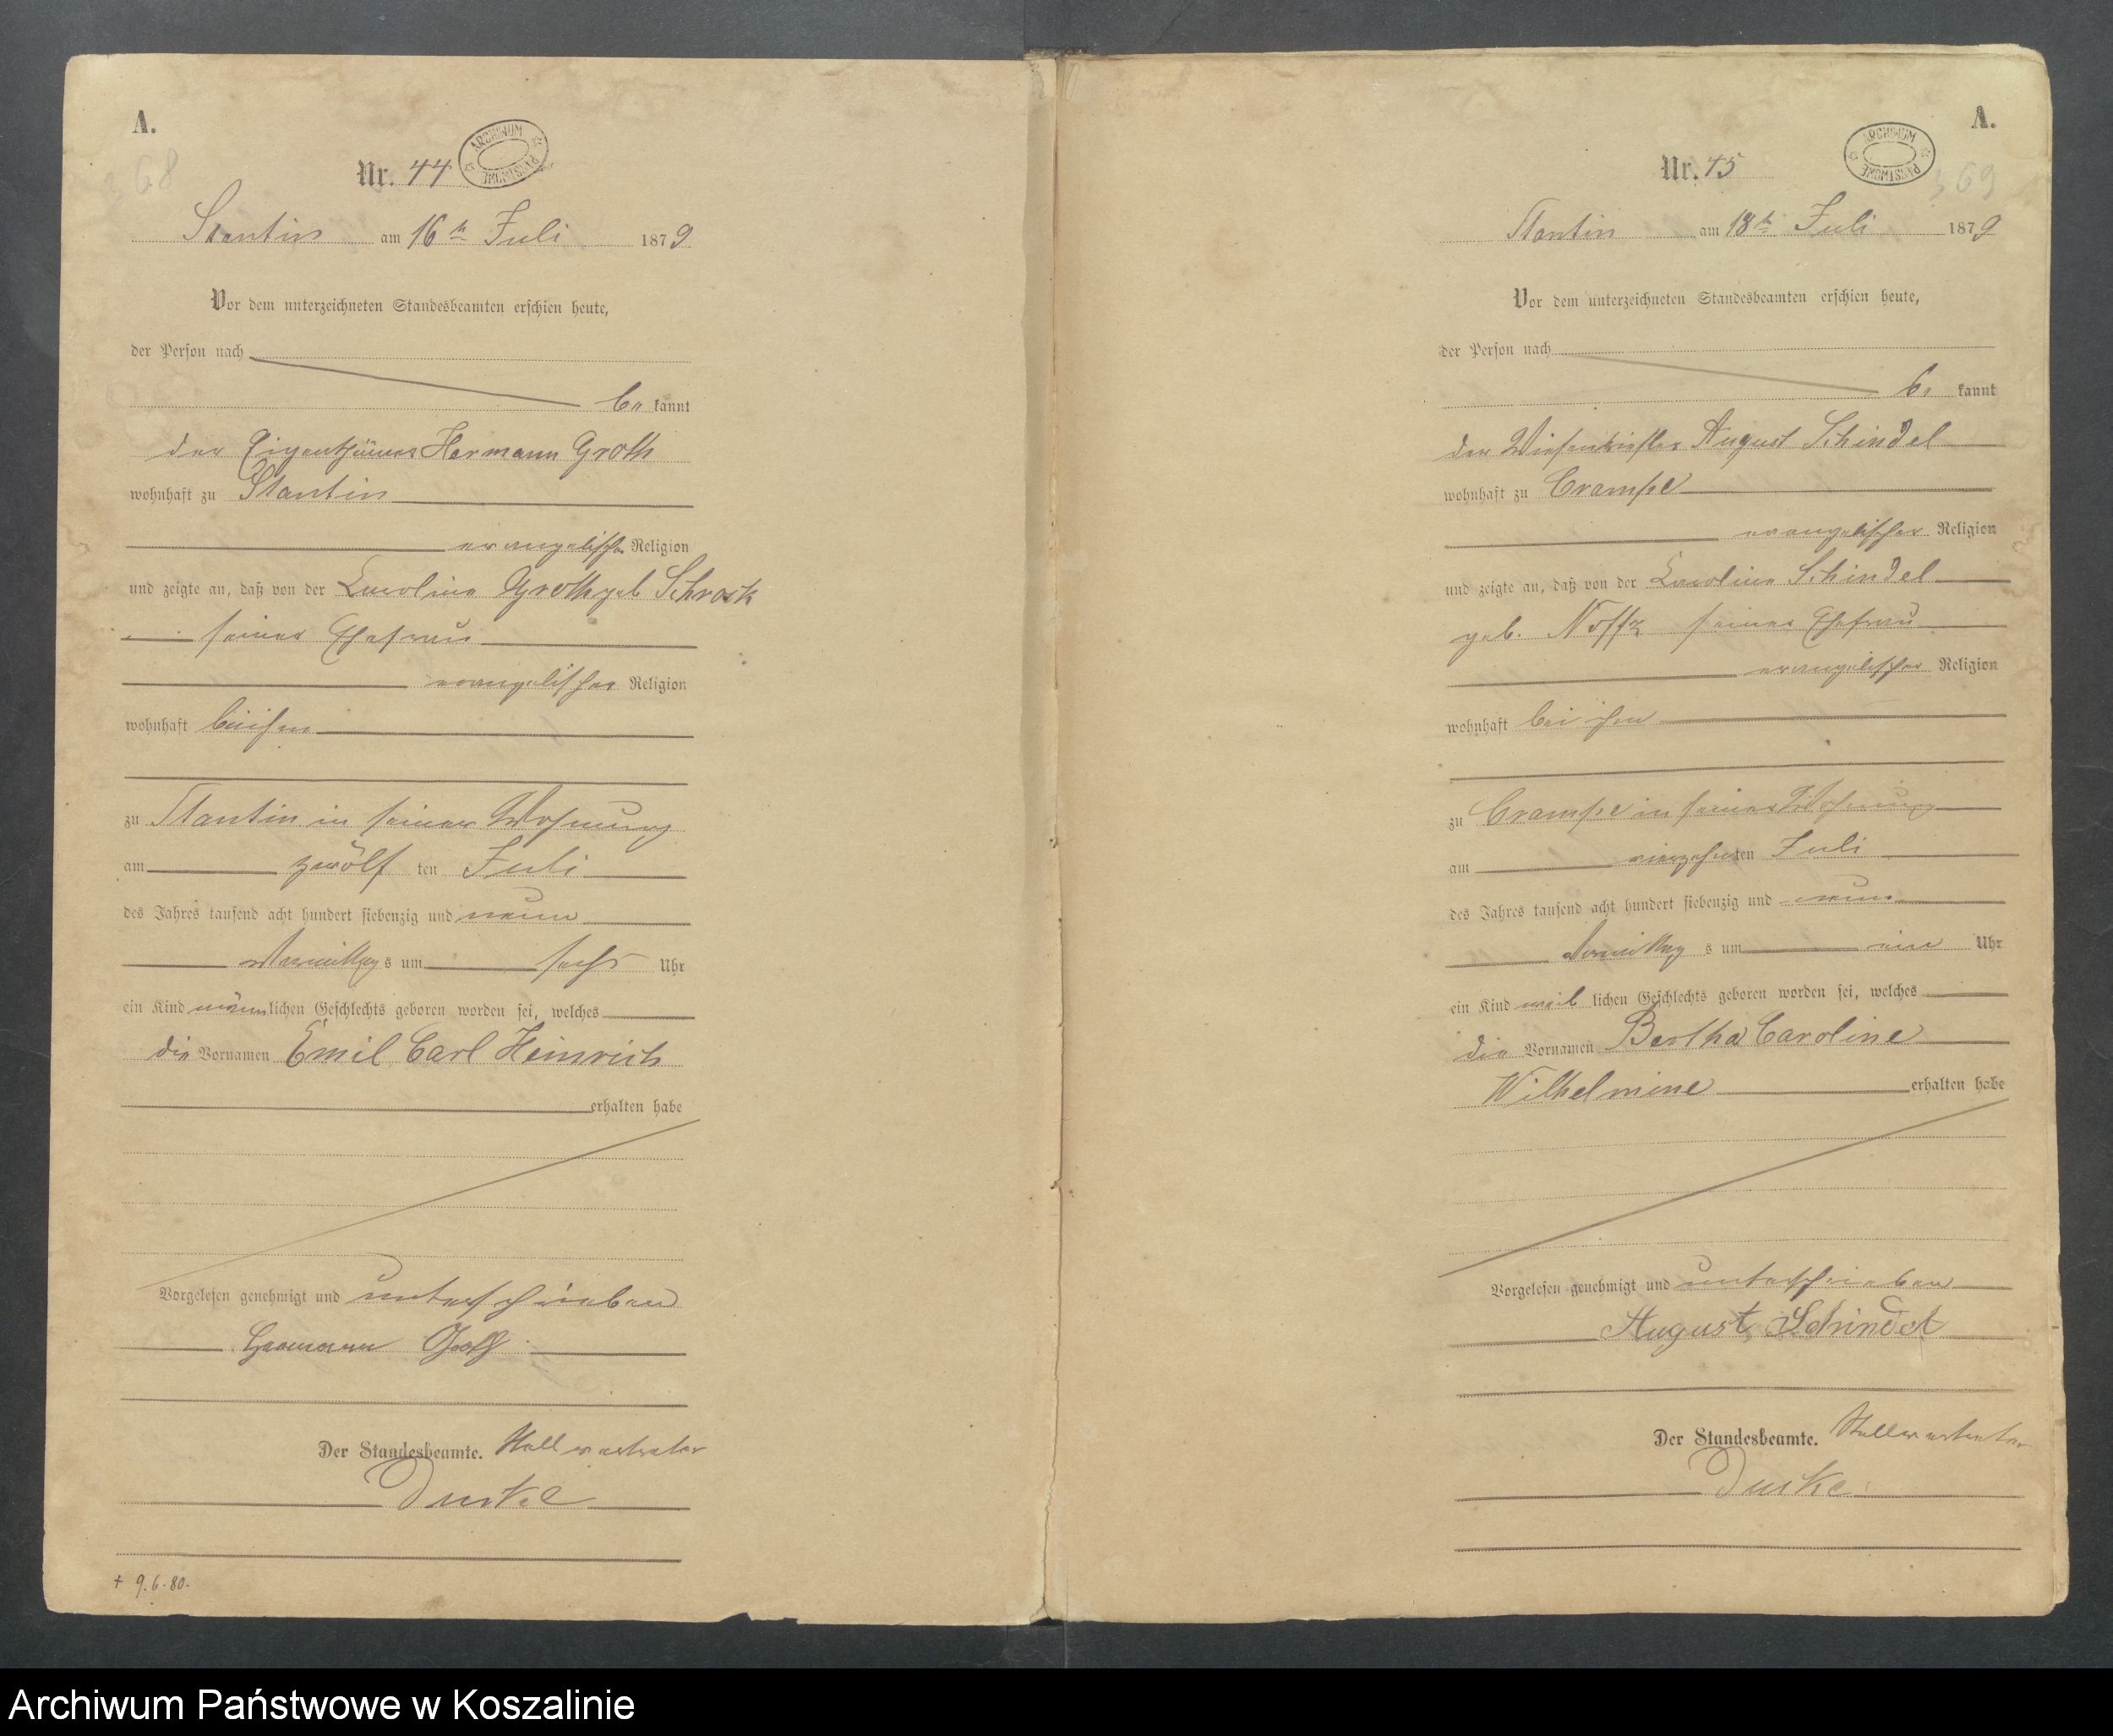 A.
368
Nr. 44
ARCHIWUM PAŃSTWOWE
Stantin am 16ten Juli 1879
Vor dem unterzeichneten Standesbeamten erschien heute,
der Person nach
be kannt
der Eigenthümer Hermann Groth
wohnhaft zu Stantin
evangelischer Religion
und zeigte an, daß von der Karoline Groth geb Schrock
seiner Ehefrau
evangelischer Religion
wohnhaft bei ihm
zu Stantin in seiner Wohnung
am zwölf ten Juli
des Jahres tausend acht hundert siebenzig und neun
Vormittags um sechs Uhr
ein Kind männlichen Geschlechts geboren worden sei, welches
die Vornamen Emil Carl Heinrich
erhalten habe
Vorgelesen genehmigt und unterschrieben
Hermann Groth
Der Standesbeamte. Stellvertreter
+ 9.6.80.
A.
369
Nr. 45
ARCHIWUM PAŃSTWOWE
Stantin am 18ten Juli 1879
Vor dem unterzeichneten Standesbeamten erschien heute,
der Person nach
be kannt
der August Schindel
wohnhaft zu Crampe
evangelischer Religion
und zeigte an, daß von der Karoline Schindel
geb. seiner Ehefrau
evangelischer Religion
wohnhaft bei ihm
zu Crampe in seiner Wohnung
am vierzehnten Juli
des Jahres tausend acht hundert siebenzig und neun
Vormittag s um ein Uhr
ein Kind weib lichen Geschlechts geboren worden sei, welches
die Vornamen Bertha Caroline
Wilhelmine erhalten habe
Vorgelesen genehmigt und unterschrieben
August Schindel
Der Standesbeamte. Stellvertreter
Archiwum Państwowe w Koszalinie